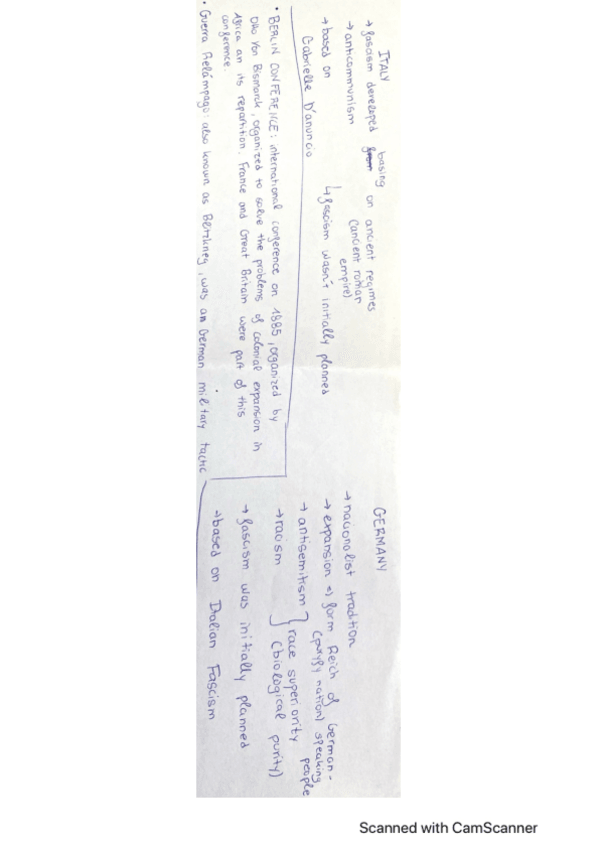 ITALY
→ fascism developed from basing on ancient regimes
(ancient roman
empire)
→ anticommunism
→ based on
↳ fascism wasn't initially planned
Gabrielle D'anuncio
GERMANY
→ nacionalist tradition
→ expansion => form Reich of German-
(purify nation) speaking
people
→ antisemitism } race superiority
→ racism (biological purity)
→ fascism was initially planned
→ based on Italian Fascism
• BERLIN CONFERENCE: international conference on 1885, organized by
Otto Von Bismarck, organized to solve the problems of colonial expansion in
Africa an its repartition. France and Great Britain were part of this
conference.
• Guerra Relámpago: also known as Blitzkrieg, was an German military tactic
Scanned with CamScanner